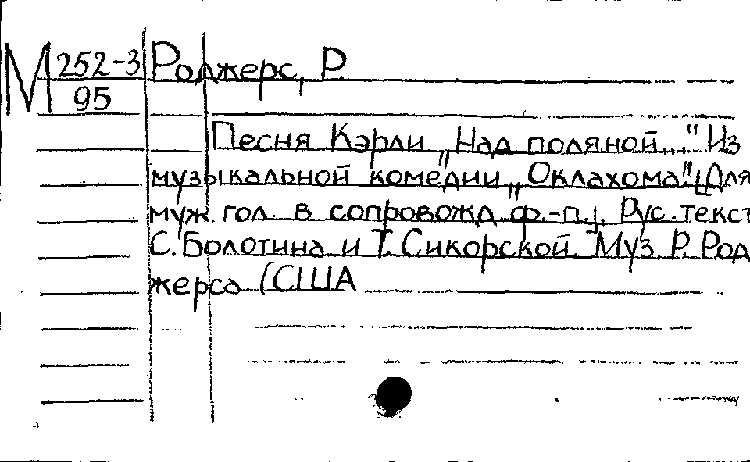 М 252-3 Роджерс, Р.
95
Песня Кэрли „Над поляной..." Из
музыкальной комедии „Оклахома". [Для
муж. гол. в сопровожд. ф.-п.]. Рус. текст
С. Болотина и Т. Сикорской. Муз. Р. Род
жерса (США